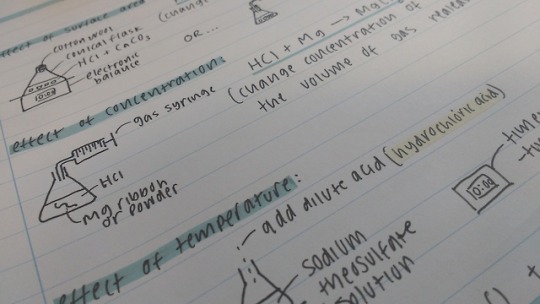 effect of surface area
(change
OR...
cotton wool
conical flask
HCl + CaCO₃
electronic
balance
effect of concentration:
HCl + Mg → MgCl
(change concentration of
the volume of gas
gas syringe
HCl
Mg ribbon
or powder
effect of temperature:
add dilute acid (hydrochloric acid)
sodium
theosulfate
solution